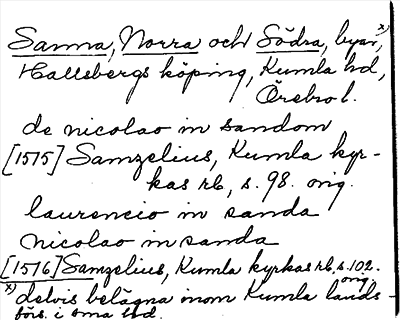 Sanna, Norra och Södra, byar, x)
Hallsbergs köping, Kumla hd,
Örebro l.
de nicolao in sandom
[1575] Samzelius, Kumla kyr-
kas rb, s. 98. orig.
laurencio in sanda
nicolao in sanda
[1576] Samzelius, Kumla kyrkas rb, s. 102.
orig.
x) delvis belägna inom Kumla lands-
förs. i sma hd.